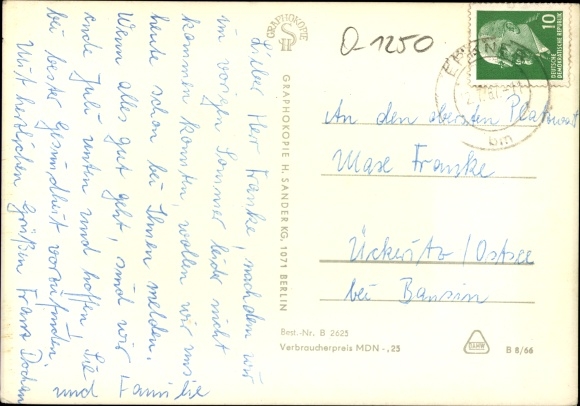 Lieber Herr Franke, nachdem wir
im vorigen Sommer leider nicht
kommen konnten, wollen wir uns
heute schon bei Ihnen melden.
Wenn alles gut geht, sind wir
Ende Juli unten und hoffen Sie und Familie
bei bester Gesundheit vorzufinden.
Mit herzlichen Grüßen Franz
GRAPHOKOPIE
GRAPHOKOPIE H. SANDER KG, 1071 BERLIN
O-1250
10
DEUTSCHE
DEMOKRATISCHE REPUBLIK
ERKNER
An den obersten Platzwart
Max Franke
Ückeritz/Ostsee
bei Bansin
Best.-Nr. B 2625
Verbraucherpreis MDN -,25
DAMW
B 8/66